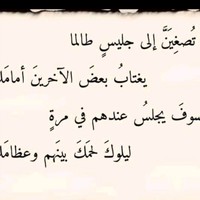 تُصغِيَنَّ إلى جليسٍ طالما
يغتابُ بعضَ الآخرينَ أمامَك
سوفَ يجلسُ عندهم في مرةٍ
ليلوكَ لحمَكَ بينَهم وعظامَك